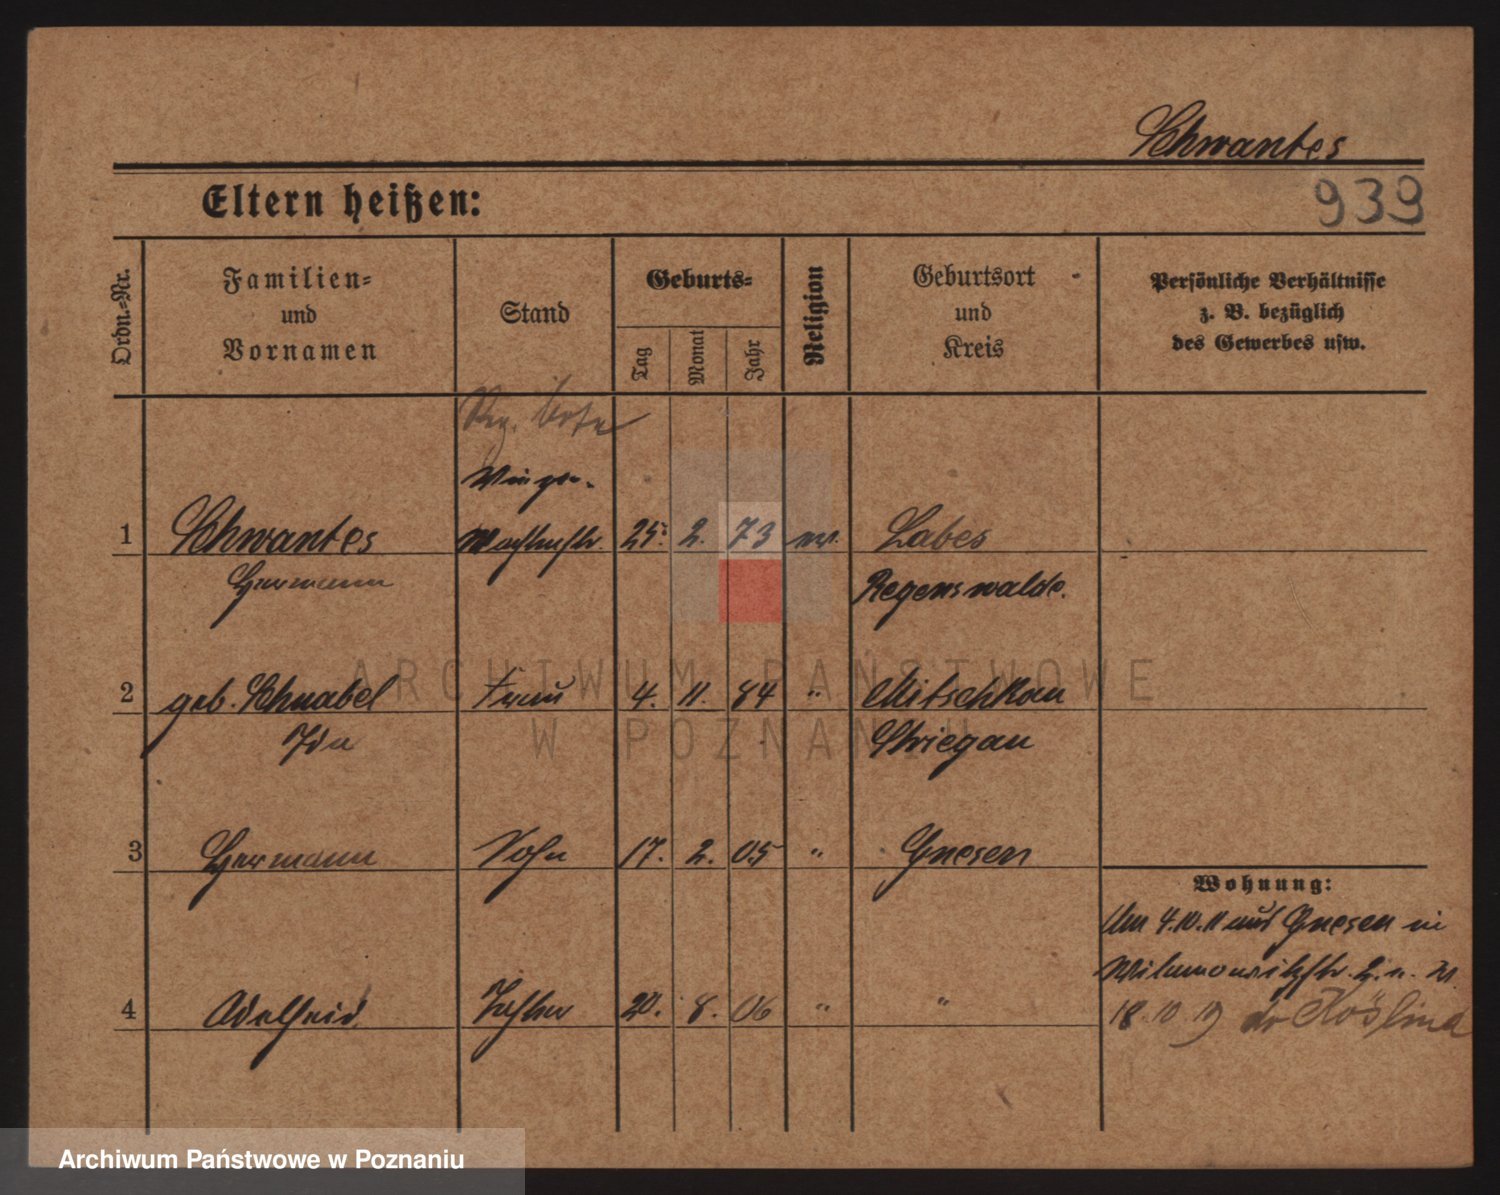 Schwantes
Eltern heißen:
939
Ordn.-Nr.
Familien-
und
Vornamen
Stand
Geburts-
Tag
Monat
Jahr
Religion
Geburtsort
und
Kreis
Persönliche Verhältnisse
z. B. bezüglich
des Gewerbes usw.
Reg. Bote
1 Schwantes 25. 2. 73 ev. Labes
Hermann Regenswalde.
2 geb. Schnabel Frau 4. 11. 84 " Mitschkau
Ida Striegau
3 Hermann Sohn 17. 2. 05 " Gnesen
Wohnung:
Am 4.10.11 aus Gnesen in
4 Adelheid Tochter 20. 8. 06 " "
18 10 19
ARCHIWUM PAŃSTWOWE
W POZNANIU
Archiwum Państwowe w Poznaniu